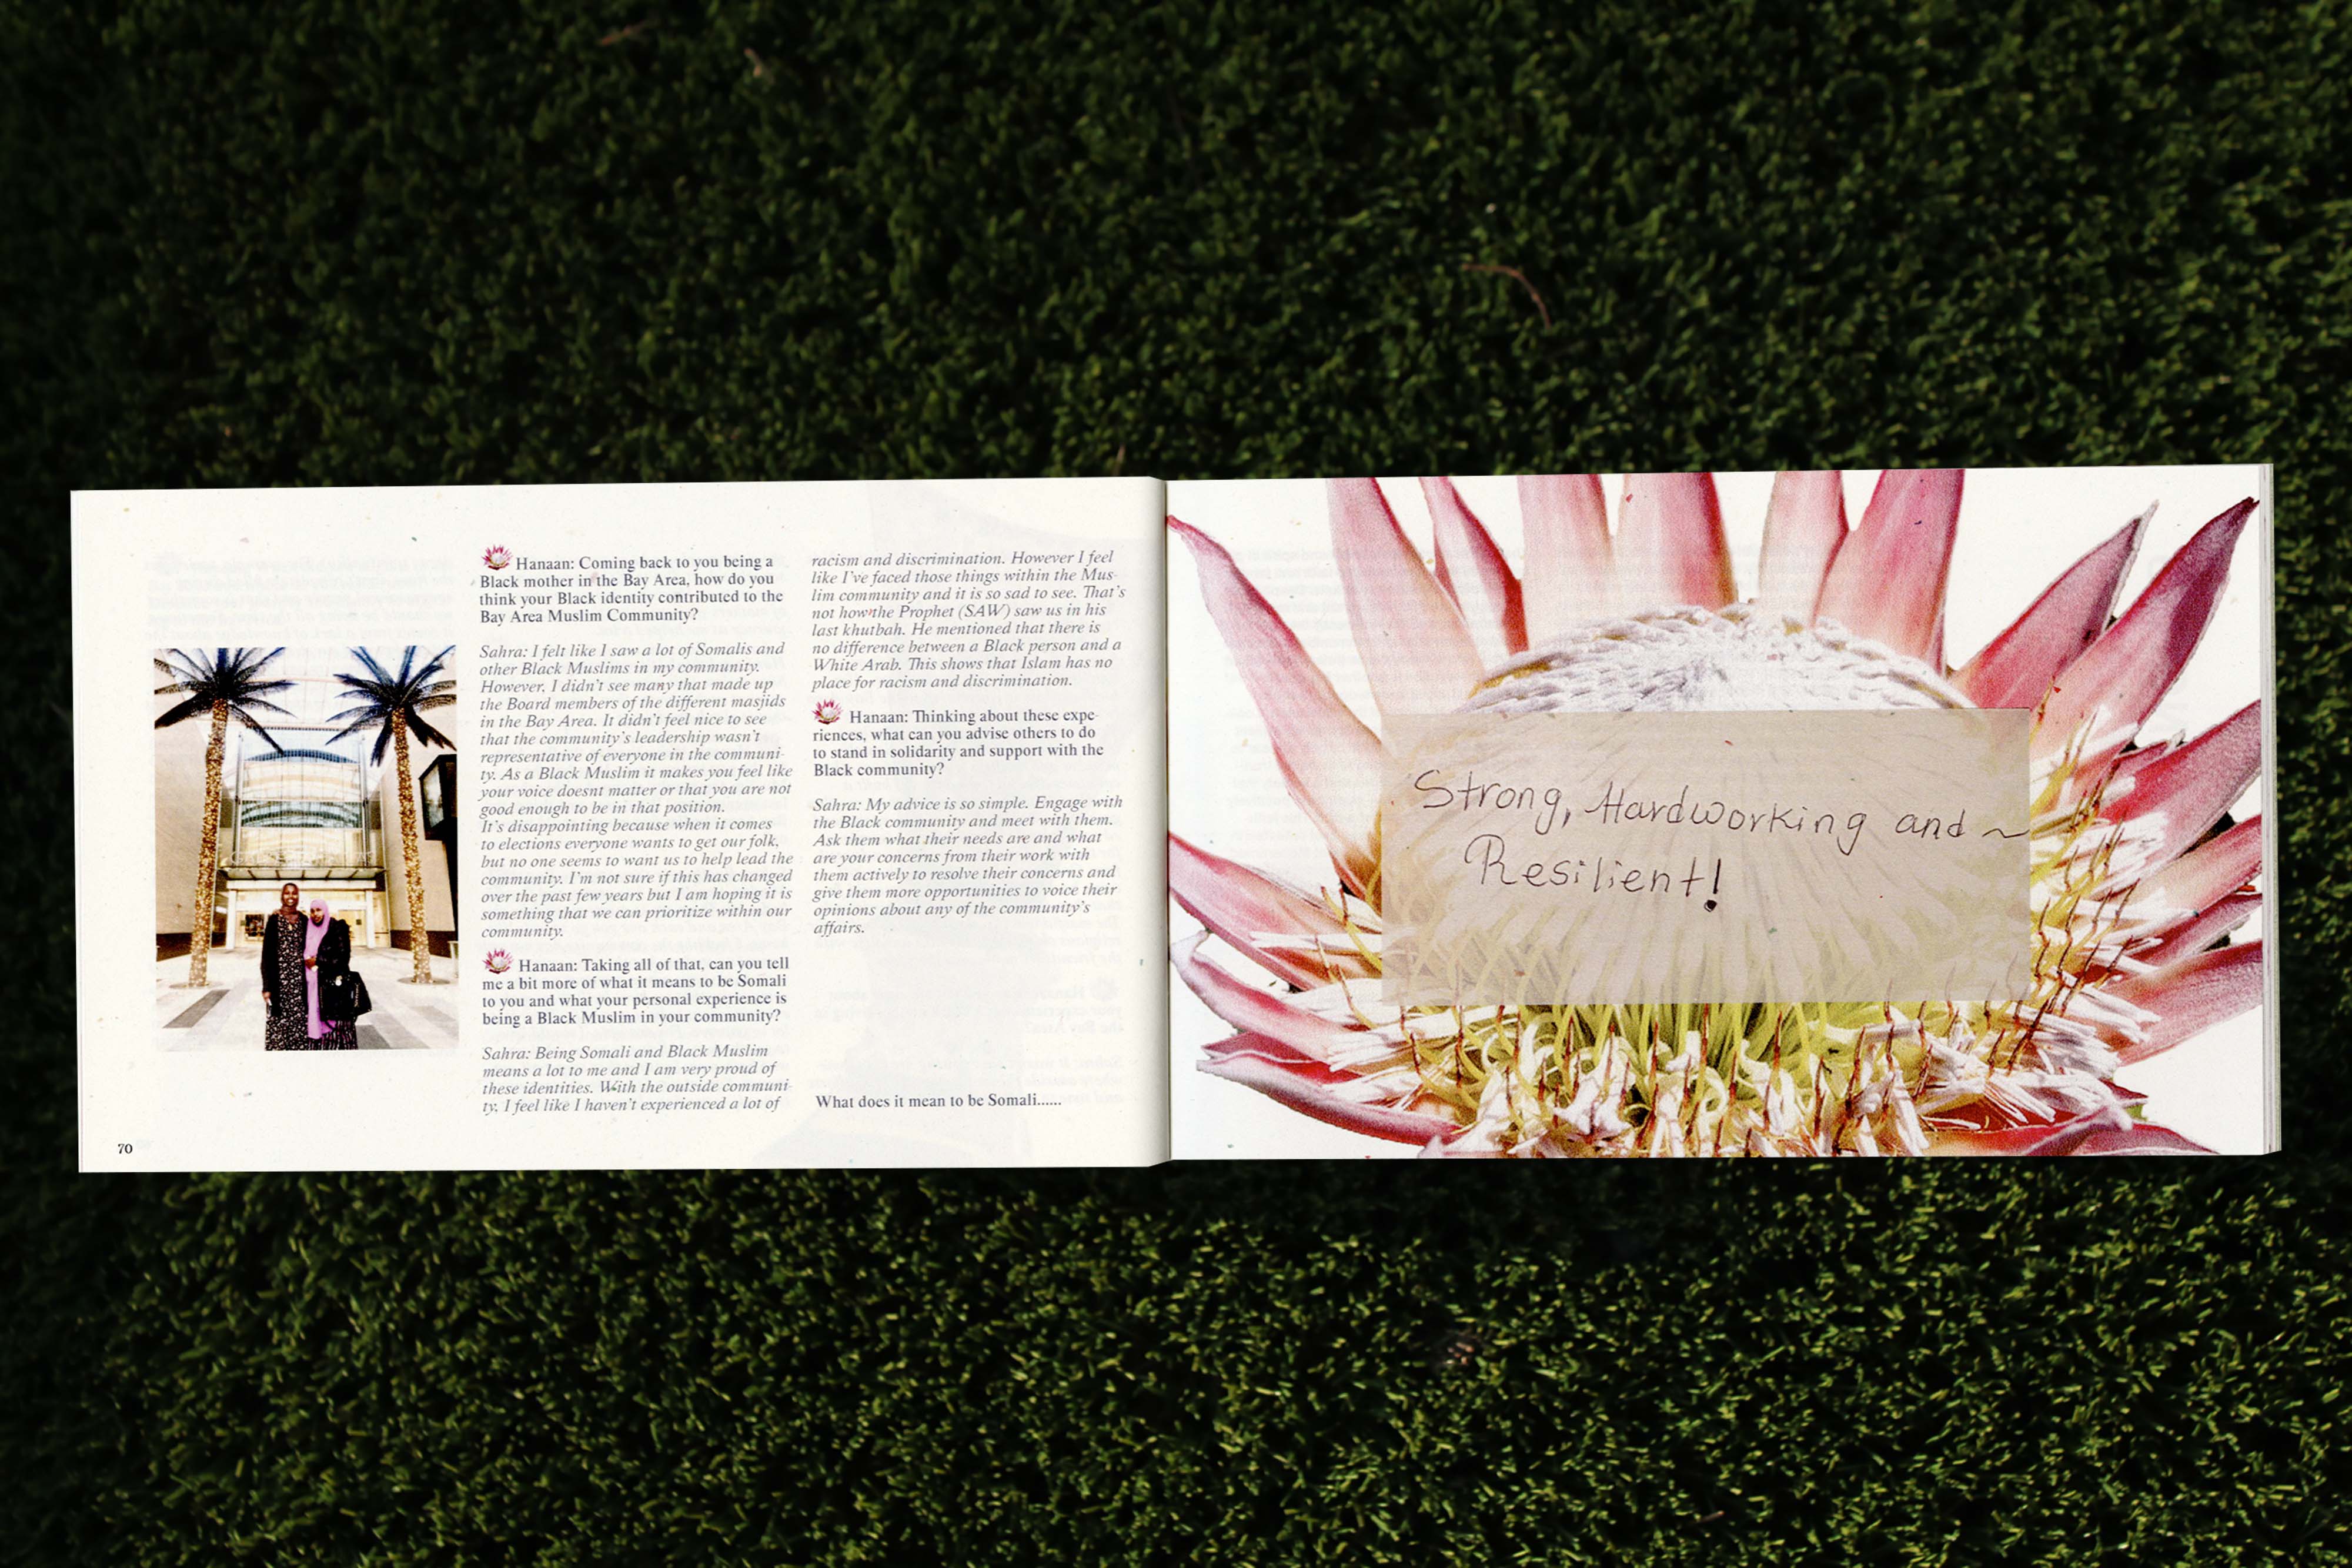 Hanaan: Coming back to you being a
Black mother in the Bay Area, how do you
think your Black identity contributed to the
Bay Area Muslim Community?
Sahra: I felt like I saw a lot of Somalis and
other Black Muslims in my community.
However, I didn't see many that made up
the Board members of the different masjids
in the Bay Area. It didn't feel nice to see
that the community's leadership wasn't
representative of everyone in the communi-
ty. As a Black Muslim it makes you feel like
your voice doesnt matter or that you are not
good enough to be in that position.
It's disappointing because when it comes
to elections everyone wants to get our folk,
but no one seems to want us to help lead the
community. I'm not sure if this has changed
over the past few years but I am hoping it is
something that we can prioritize within our
community.
Hanaan: Taking all of that, can you tell
me a bit more of what it means to be Somali
to you and what your personal experience is
being a Black Muslim in your community?
Sahra: Being Somali and Black Muslim
means a lot to me and I am very proud of
these identities. With the outside communi-
ty, I feel like I haven't experienced a lot of
racism and discrimination. However I feel
like I've faced those things within the Mus-
lim community and it is so sad to see. That's
not how the Prophet (SAW) saw us in his
last khutbah. He mentioned that there is
no difference between a Black person and a
White Arab. This shows that Islam has no
place for racism and discrimination.
Hanaan: Thinking about these expe-
riences, what can you advise others to do
to stand in solidarity and support with the
Black community?
Sahra: My advice is so simple. Engage with
the Black community and meet with them.
Ask them what their needs are and what
are your concerns from their work with
them actively to resolve their concerns and
give them more opportunities to voice their
opinions about any of the community's
affairs.
What does it mean to be Somali......
70
Strong, Hardworking and ~
Resilient!